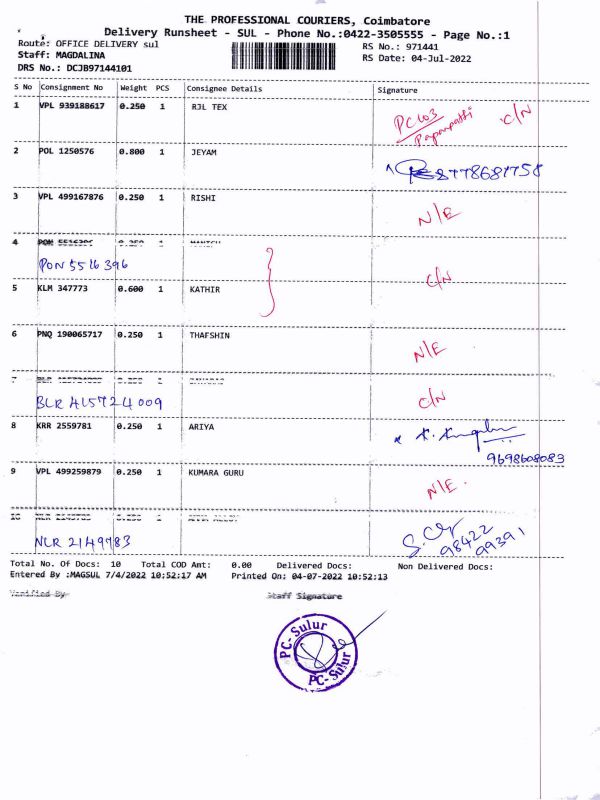 THE PROFESSIONAL COURIERS, Coimbatore
Delivery Runsheet - SUL - Phone No.:0422-3505555 - Page No.:1
Route: OFFICE DELIVERY sul
RS No.: 971441
Staff: MAGDALINA
RS Date: 04-Jul-2022
DRS No.: DCJB97144101
S No Consignment No Weight PCS Consignee Details Signature
1 VPL 939188617 0.250 1 RJL TEX C/N
2 POL 1250576 0.800 1 JEYAM 8778687758
3 VPL 499167876 0.250 1 RISHI N/E
4 PON 5516396 0.250 1
PON 5516396 C/N
5 KLM 347773 0.600 1 KATHIR
6 PNQ 190065717 0.250 1 THAFSHIN N/E
7 1
BLR A15724009 C/N
8 KRR 2559781 0.250 1 ARIYA
9698608083
9 VPL 499259879 0.250 1 KUMARA GURU N/E.
10 1
NLR 2149783 98422
99391
Total No. Of Docs: 10 Total COD Amt: 0.00 Delivered Docs: Non Delivered Docs:
Entered By :MAGSUL 7/4/2022 10:52:17 AM Printed On: 04-07-2022 10:52:13
Verified By Staff Signature
PC-Sulur
PC-Sulur